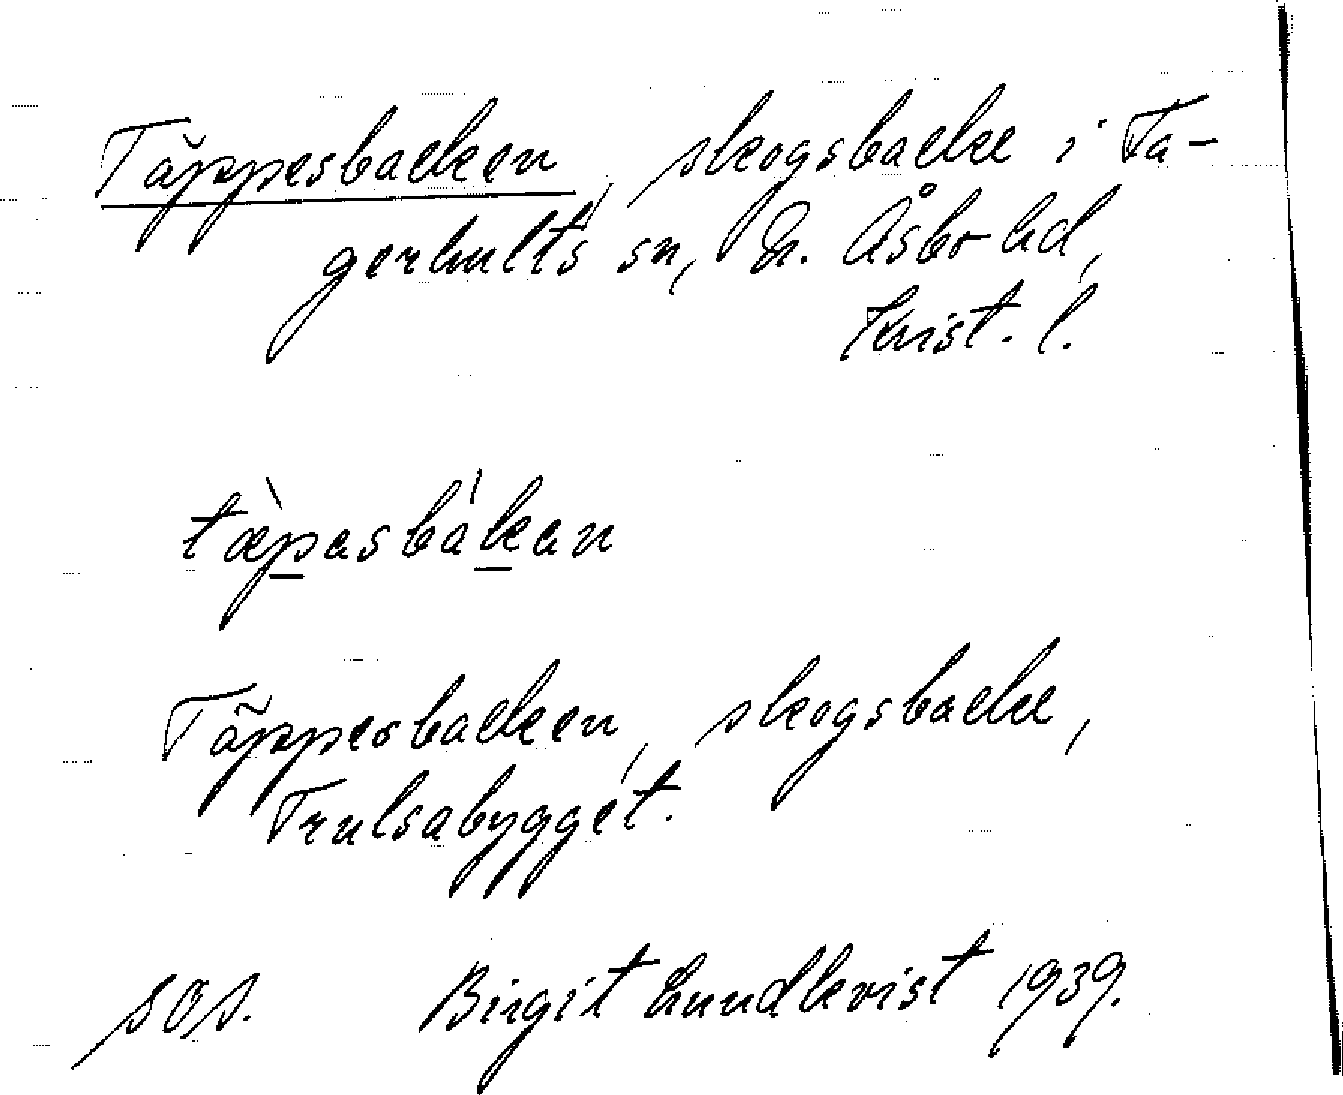 Täppesbacken, skogsbacke i Ta-
gerhults sn, N. Åsbo hd,
Krist. l.
tæ̀pasbákan
Täppesbacken, skogsbacke,
Trulsabygget.
sos. Birgit Lundkvist 1939.